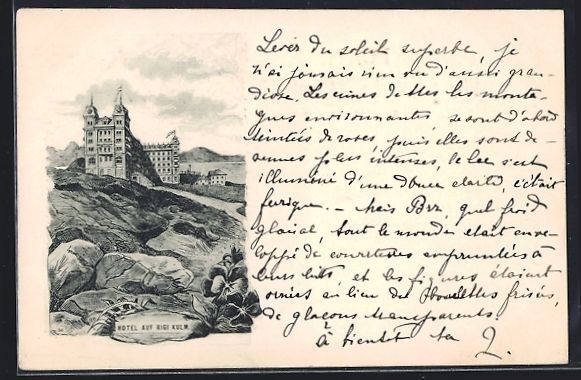 Lever du soleil superbe, je
n'ai jamais rien vu d'aussi gran-
diose. Les cimes de ttes les monta-
gnes environnantes se sont d'abord
teintées de roses, puis elles sont de-
venues plus intenses, le lac s'est
illuminé d'une douce clarté, c'était
féerique. – Mais Brr, quel froid
glacial, tout le monde était enve-
loppé de couvertures empruntées à
leurs lits, et les figures étaient
ornées au lieu de bouclettes frisées,
de glaçons transparents.
à bientôt ta
HOTEL AUF RIGI KULM.